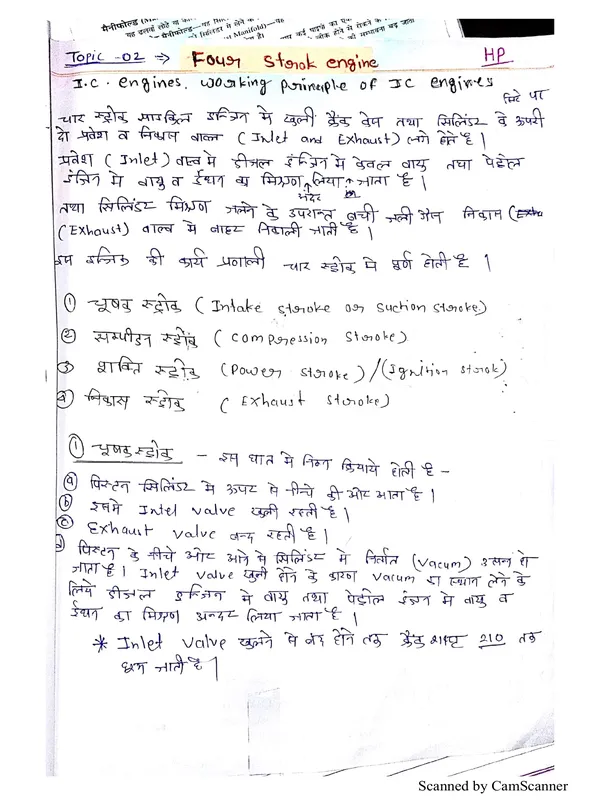 मैनीफोल्ड
Topic -02 ⇒ Four Strok engine HP
I.C. engines. working principle of IC engines
सिरे पर
चार स्ट्रोक साइकिल इन्जिन मे खुली क्रैंक केस तथा सिलिंडर के ऊपरी
दो प्रवेश व निकास वाल्व ( Inlet and Exhaust) लगे होते है |
प्रवेश ( Inlet) वाल्व मे डीजल इंन्जिन मे केवल वायु तथा पेट्रोल
इंजिन मे वायु व ईधन का मिश्रण लिया जाता है |
अंदर
तथा सिलिंडर मिश्रण जलने के उपरान्त बची जली गैस निकास (Exha
(Exhaust) वाल्व से बाहर निकाली जाती है |
इस इन्जिन की कार्य प्रणाली चार स्ट्रोक मे पूर्ण होती है |
① चूषक स्ट्रोक ( Intake stroke or suction stroke)
② सम्पीडन स्ट्रोक ( compression stroke)
③ शक्ति स्ट्रोक (Power stroke) /(Ignition strok)
④ निकास स्ट्रोक ( Exhaust stroke)
① चूषक स्ट्रोक - इस घात मे निम्न क्रियाये होती है -
ⓐ पिस्टन सिलिंडर मे ऊपर से नीचे की ओर आता है |
ⓑ इसमे Intel valve खुली रहती है |
ⓒ Exhaust valve बन्द रहती है |
ⓓ पिस्टन के नीचे ओर आने से सिलिंडर मे निर्वात (Vacum) उत्पन्न हो
जाता है | Inlet valve खुली होने के कारण vacum का स्थान लेने के
लिये डीजल इन्जिन मे वायु तथा पेट्रोल इंजन मे वायु व
ईधन का मिश्रण अन्दर लिया जाता है |
* Inlet valve खुलने से बंद होने तक क्रैंक शाफ्ट 210 तक
घूम जाती है |
Scanned by CamScanner